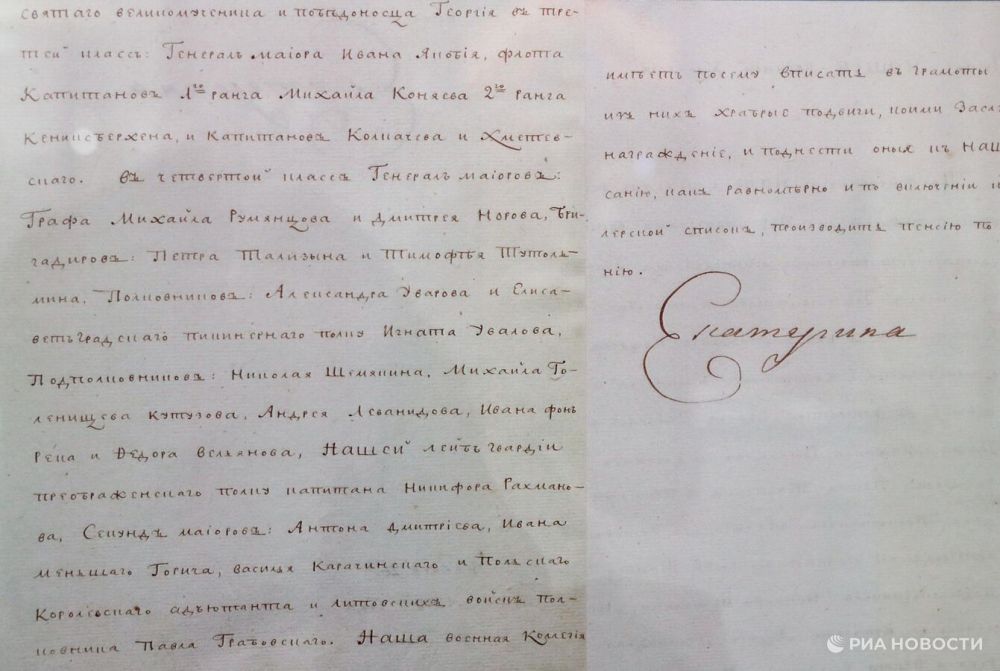 святаго великомученика и побѣдоносца Георгія въ тре-
тей классъ: Генералъ маіора Ивана Якобія, флота
Капитановъ 1го ранга Михайла Коняева 2го ранга
Кенигсберхена, и капитановъ Колпачева и Хметев-
скаго. въ четвертой классъ Генералъ маіоровъ:
Графа Михайла Румянцова и Дмитрея Норова, Бри-
гадировъ: Петра Тализына и Тимофѣя Тутол-
мина, Полковниковъ: Александра Уварова и Елиса-
ветъградскаго пикинернаго полку Игната Увалова,
Подполковниковъ: Николая Шемякина, Михайла Го-
ленищева кутузова, Андрея Леванидова, Ивана фонъ
Река и Ѳедора Вельянова, Нашей лейбъ гвардіи
преображенскаго полку капитана Никифора Рахмано-
ва, Секундъ маіоровъ: Антона Дмитріева, Ивана
меньшаго Горича, василья Карачинскаго и Польскаго
Королевскаго адъютанта и литовскихъ войскъ пол-
ковника Павла Грабовскаго. Наша военная Коллегія
имѣетъ посему вписать въ грамоты
из них храбрые подвиги, коими Засл
награжденіе, и поднести оныя къ Наш
санію, какъ равномѣрно и по включеніи
лерской списокъ, производить пенсію по
нію.
Екатерина
РИА НОВОСТИ